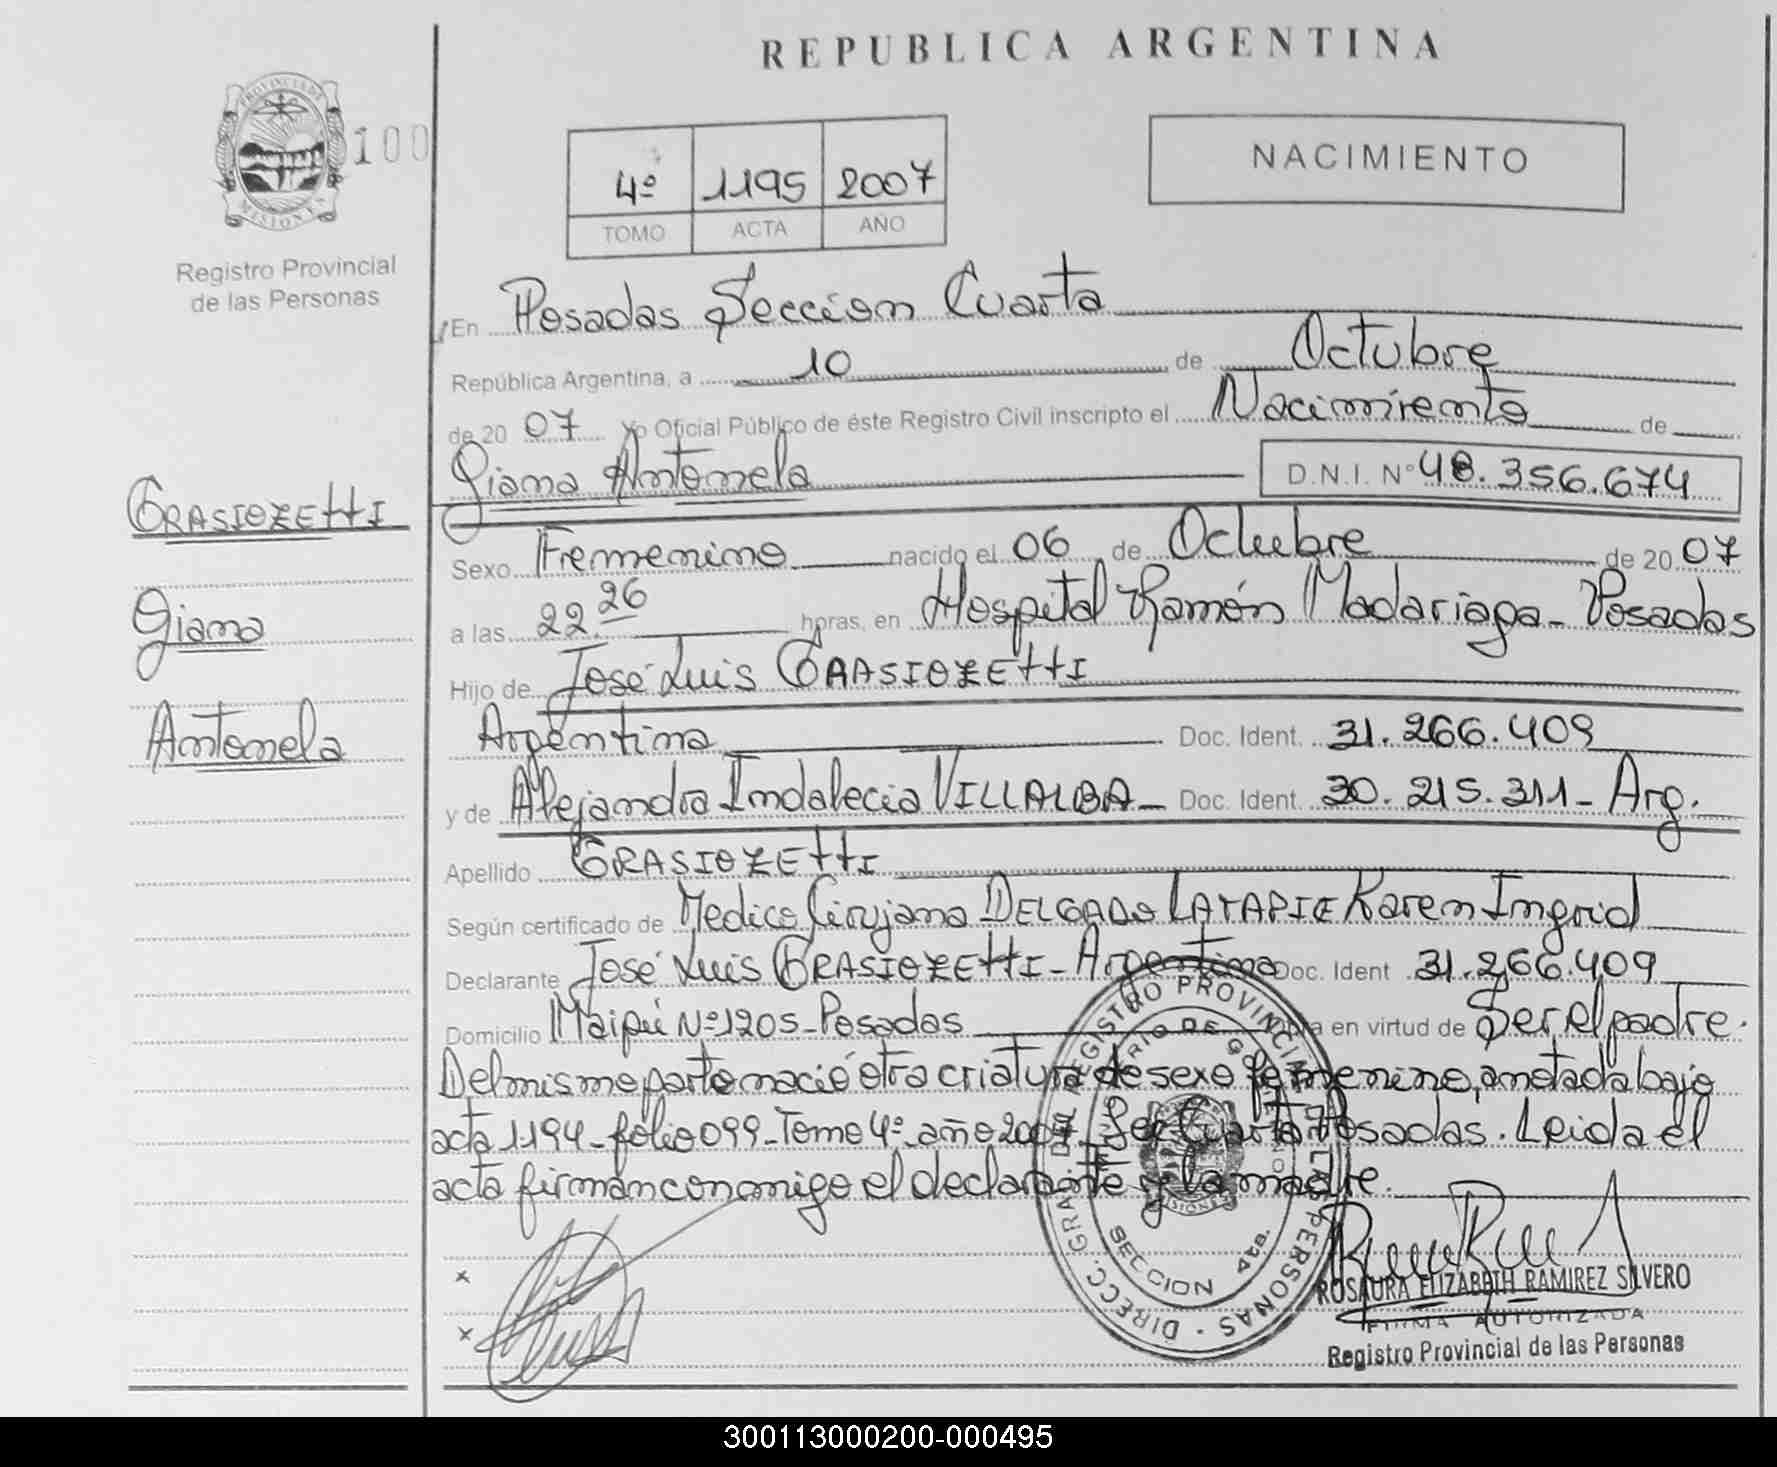 REPUBLICA ARGENTINA
PROVINCIA DE
MISIONES
100
Registro Provincial
de las Personas
4º 1195 2007
TOMO ACTA AÑO
NACIMIENTO
En Posadas Sección Cuarta
República Argentina, a 10 de Octubre
de 20 07 Yo Oficial Público de éste Registro Civil inscripto el Nacimiento de
Giana Antonela D.N.I. Nº 48.356.674
GRASIOZETTI
Giana
Antonela
Sexo Femenino nacido el 06 de Octubre de 20 07
a las 22.26 horas, en Hospital Ramón Madariaga - Posadas
Hijo de José Luis GRASIOZETTI
Argentina Doc. Ident. 31.266.409
y de Alejandra Indalecia VILLALBA - Doc. Ident. 30.215.311 - Arg.
Apellido GRASIOZETTI
Según certificado de Medico Cirujana DELGADO LATAPIE Karen Ingrid
Declarante José Luis GRASIOZETTI - Argentina Doc. Ident 31.266.409
Domicilio Maipú Nº 1205 - Posadas en virtud de Ser el padre.
Del mismo parto nació otra criatura de sexo femenino, anotada bajo
acta 1194 - folio 099 - Tomo 4º - año 2007 - Sec Cuarta Posadas. Leida el
acta firman conmigo el declarante y la madre.
DIRECC. GRAL. DEL REGISTRO PROVINCIAL DE LAS PERSONAS
SECCION 4ta.
x
x
ROSAURA ELIZABETH RAMIREZ SILVERO
FIRMA AUTORIZADA
Registro Provincial de las Personas
300113000200-000495